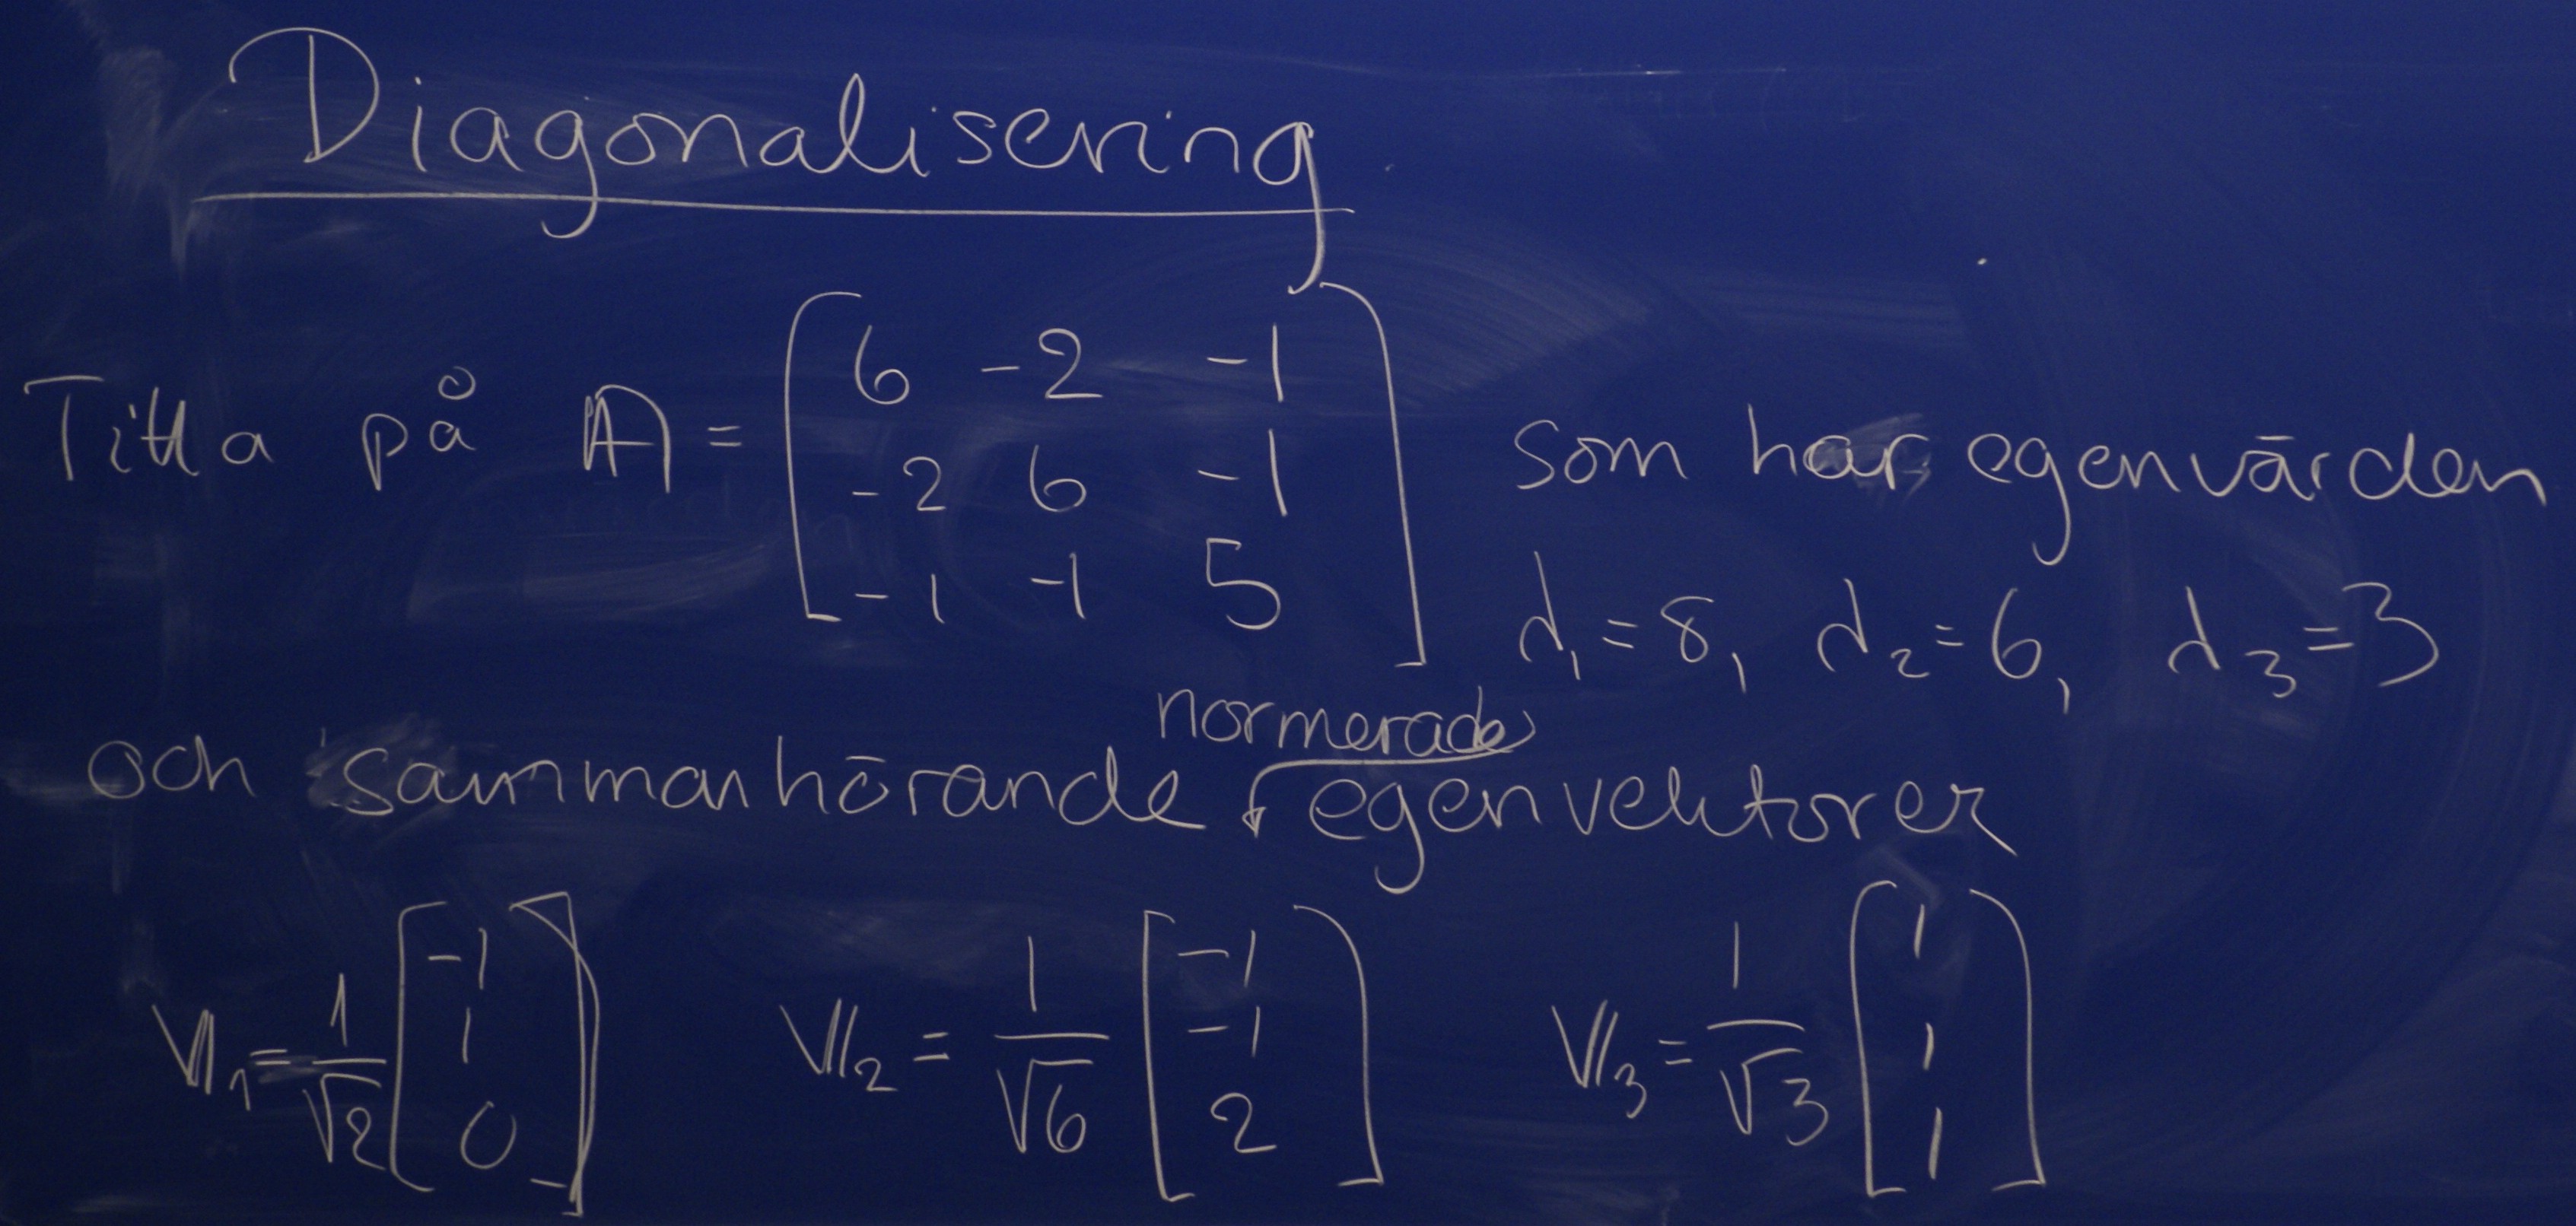 Diagonalisering
Titta på A = [6 -2 -1; -2 6 -1; -1 -1 5] som har egenvärden
λ₁ = 8, λ₂ = 6, λ₃ = 3
och sammanhörande normerade egenvektorer
v₁ = 1/√2 [-1; 1; 0] v₂ = 1/√6 [-1; -1; 2] v₃ = 1/√3 [1; 1; 1]